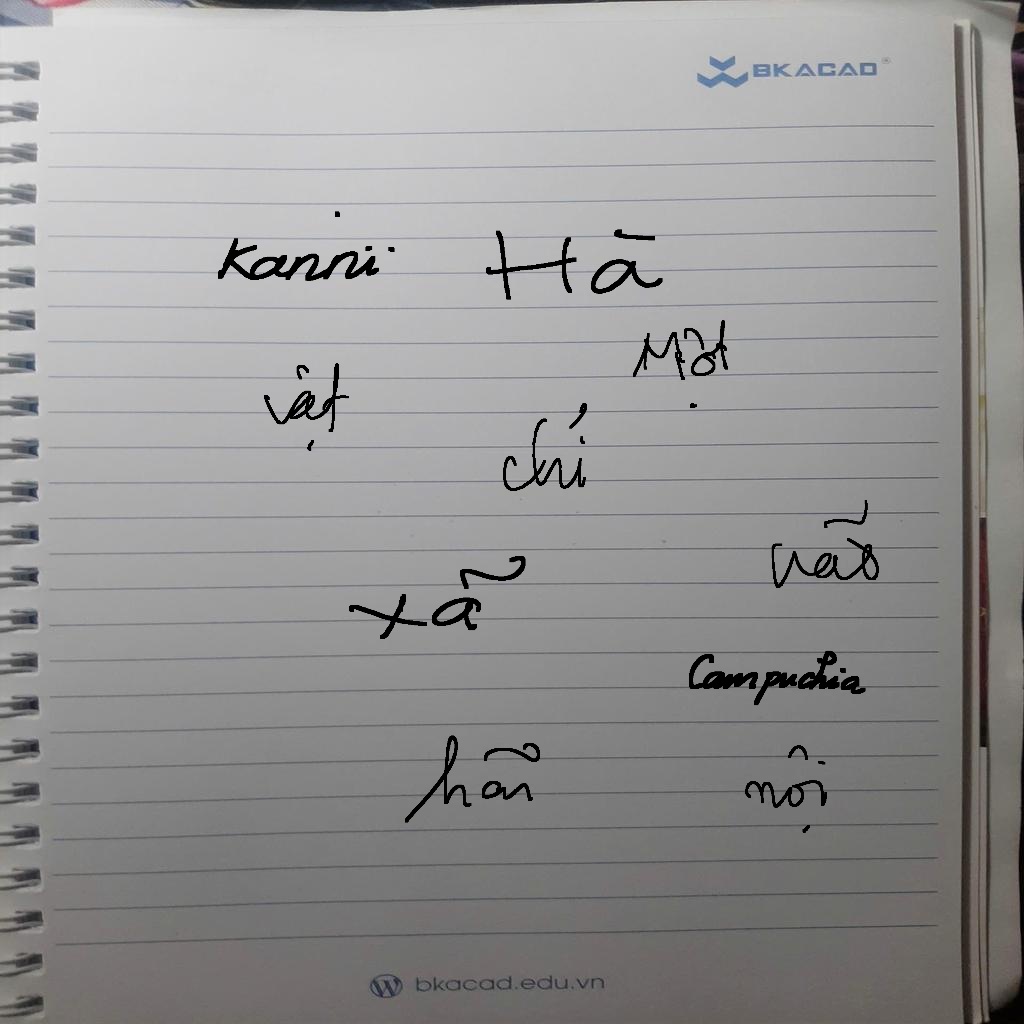 BKACAD®
Kanrii Hà
Một
vật
chí
não
xã
Campuchia
hãi
nội
bkacad.edu.vn